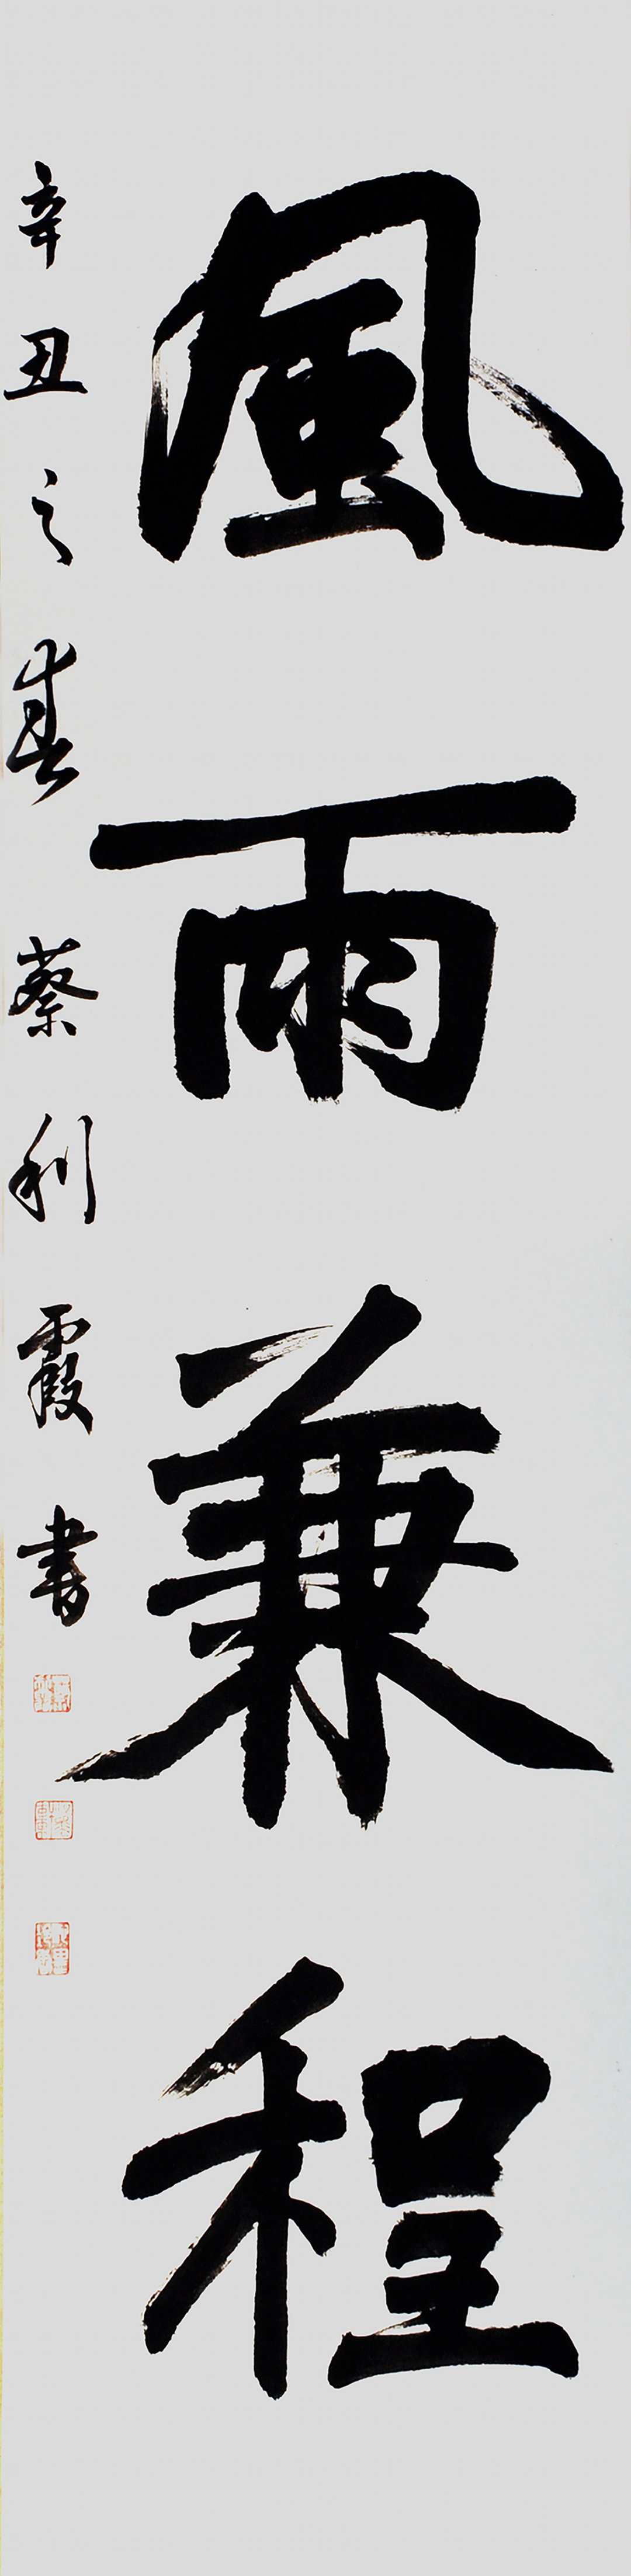 風雨兼程
辛丑之春蔡利霞書